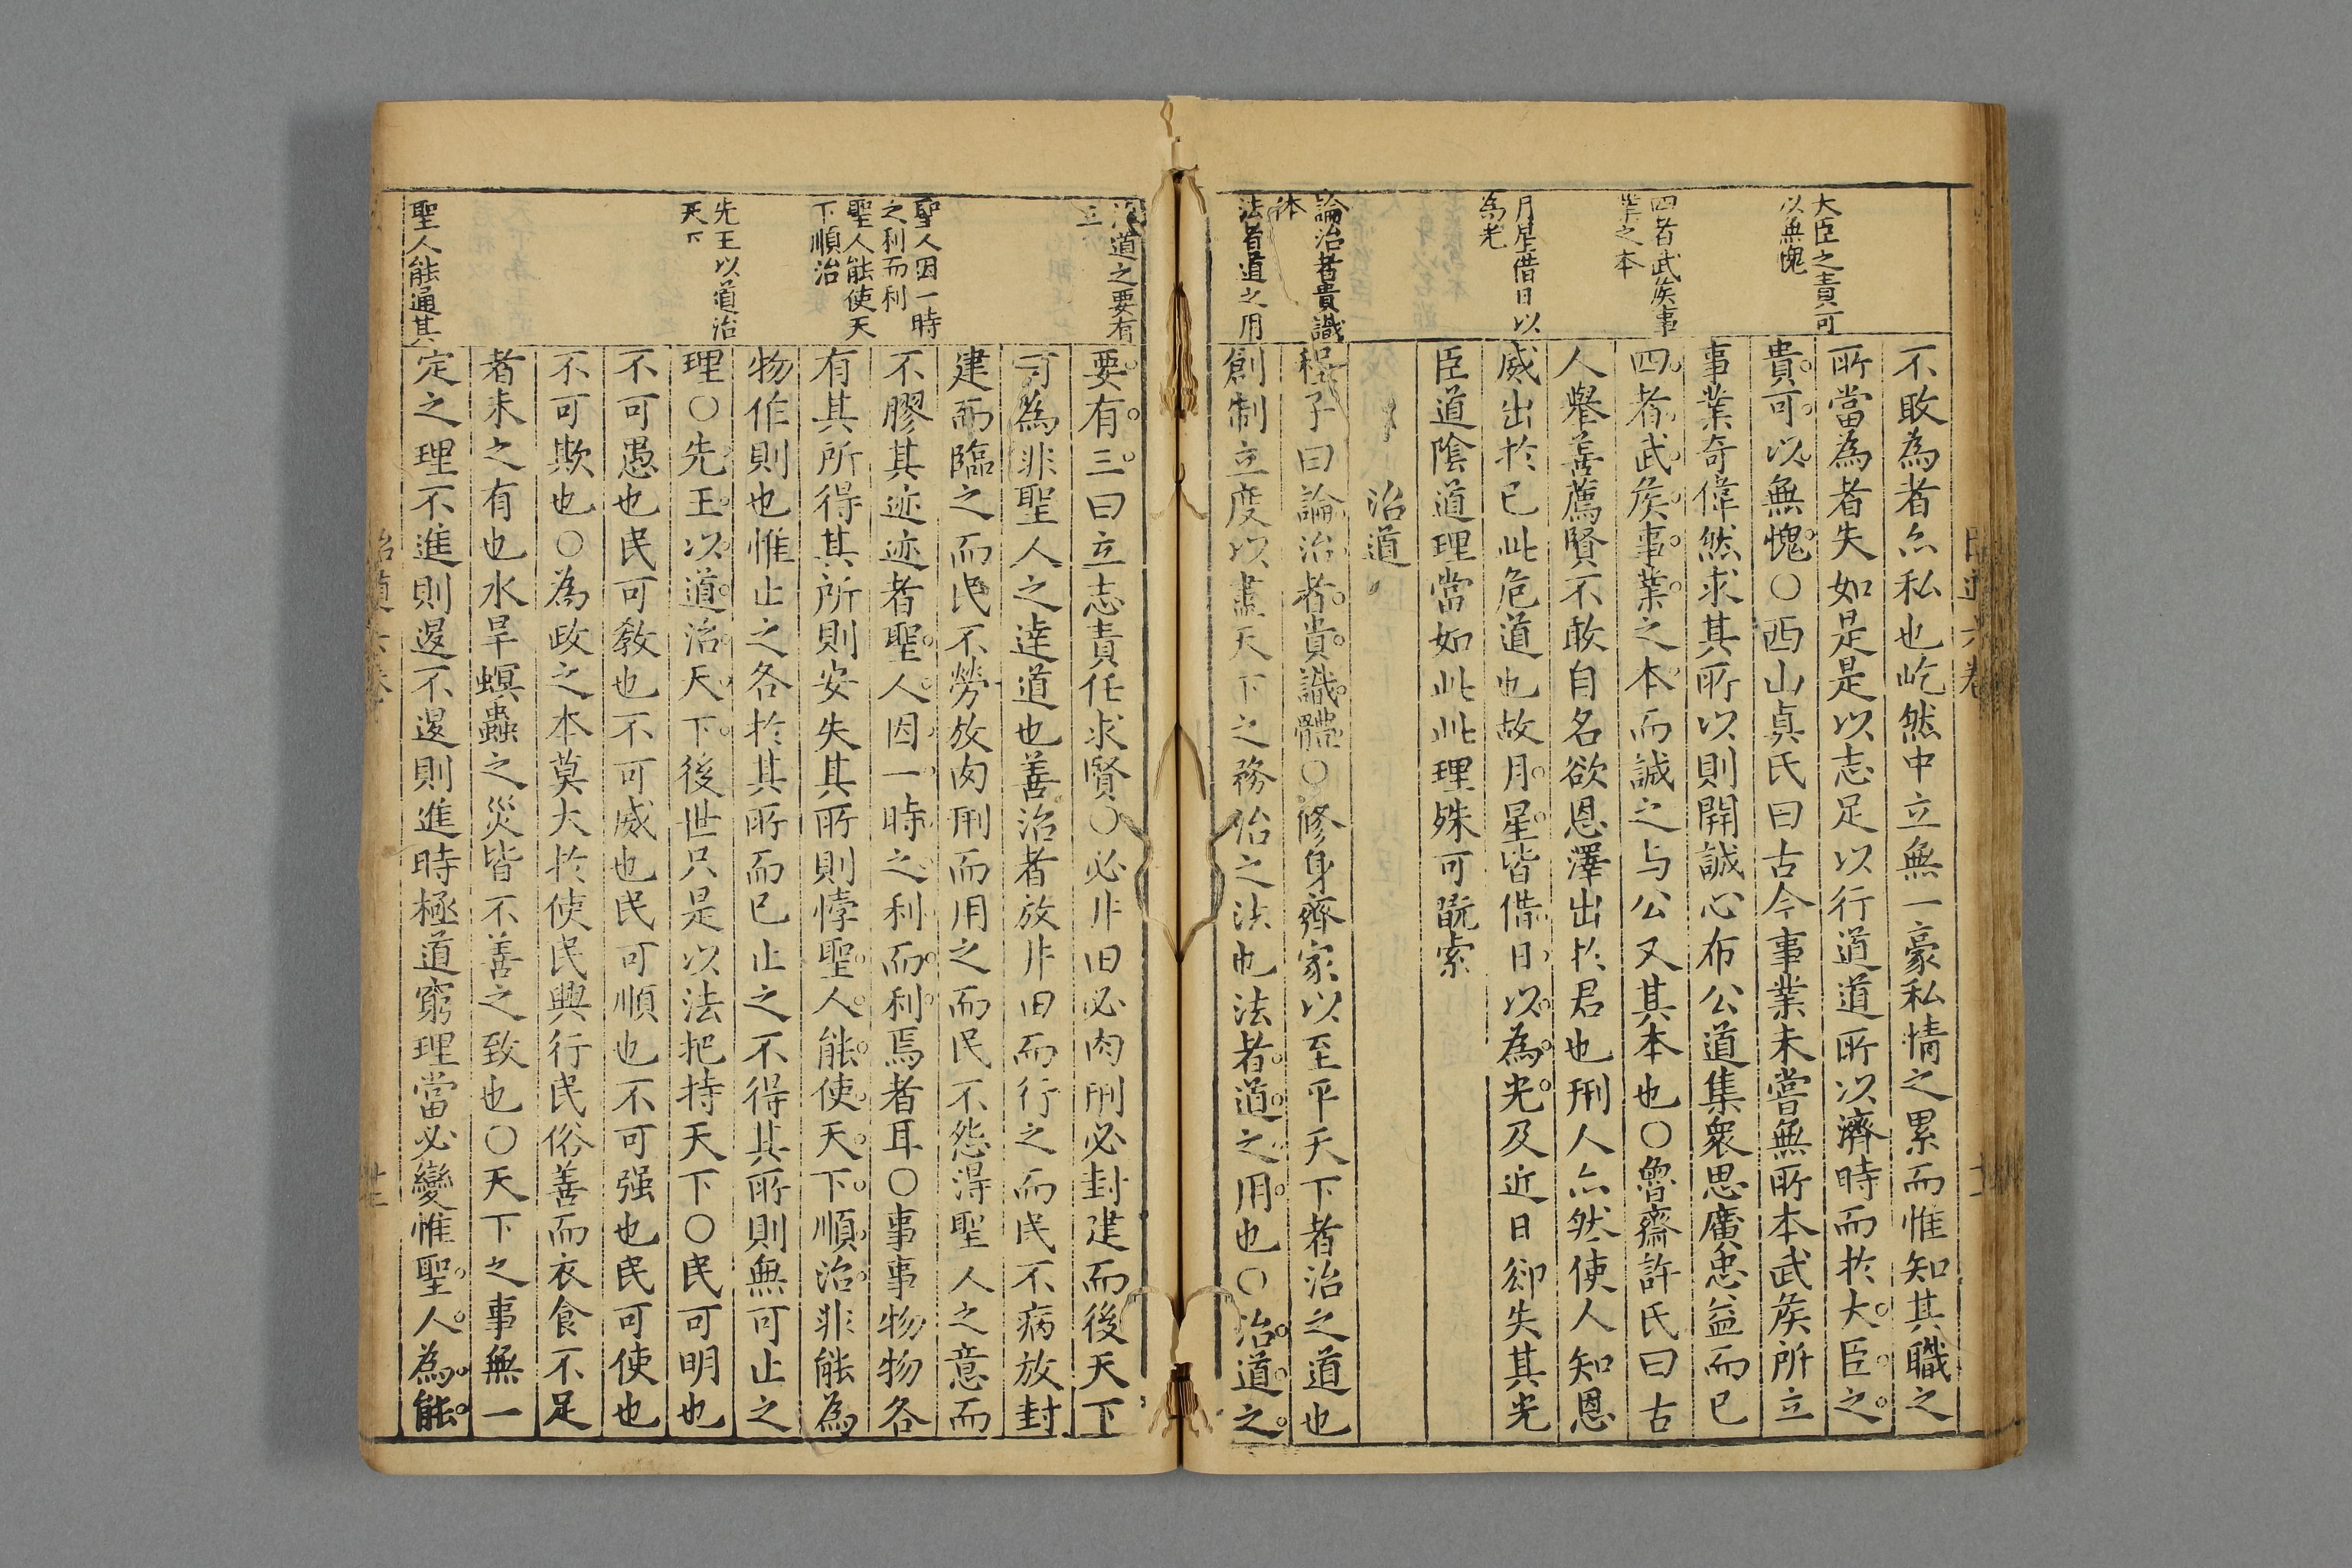 大臣之責可
以無愧
四者武侯事
業之本
月星借日以
為光
論治者貴識
体
法者道之用
不敢為者亦私也屹然中立無一豪私情之累而惟知其職之
所當為者失如是是以志足以行道道所以濟時而於大臣之
貴可以無愧○西山真氏曰古今事業未嘗無所本武侯所立
事業奇偉然求其所以則開誠心布公道集衆思廣忠益而已
四者武侯事業之本而誠之与公又其本也○魯齋許氏曰古
人舉善薦賢不敢自名欲恩澤出於君也刑人亦然使人知恩
威出於己此危道也故月星皆借日以為光及近日卻失其光
臣道陰道理當如此此理殊可翫索
治道
程子曰論治者貴識體○修身齊家以至平天下者治之道也
創制立度以盡天下之務治之法也法者道之用也○治道之
道之要有
聖人因一時
之利而利
聖人能使天
下順治
先王以道治
天下
聖人能通其
要有三曰立志責任求賢○必井田必肉刑必封建而後天下
可為非聖人之達道也善治者放井田而行之而民不病放封
建而臨之而民不勞放肉刑而用之而民不怨得聖人之意而
不膠其迹迹者聖人因一時之利而利焉者耳○事事物物各
有其所得其所則安失其所則悖聖人能使天下順治非能為
物作則也惟止之各於其所而已止之不得其所則無可止之
理○先王以道治天下後世只是以法把持天下○民可明也
不可愚也民可教也不可威也民可順也不可强也民可使也
不可欺也○為政之本莫大於使民興行民俗善而衣食不足
者未之有也水旱螟蟲之災皆不善之致也○天下之事無一
定之理不進則退不退則進時極道窮理當必變惟聖人為能